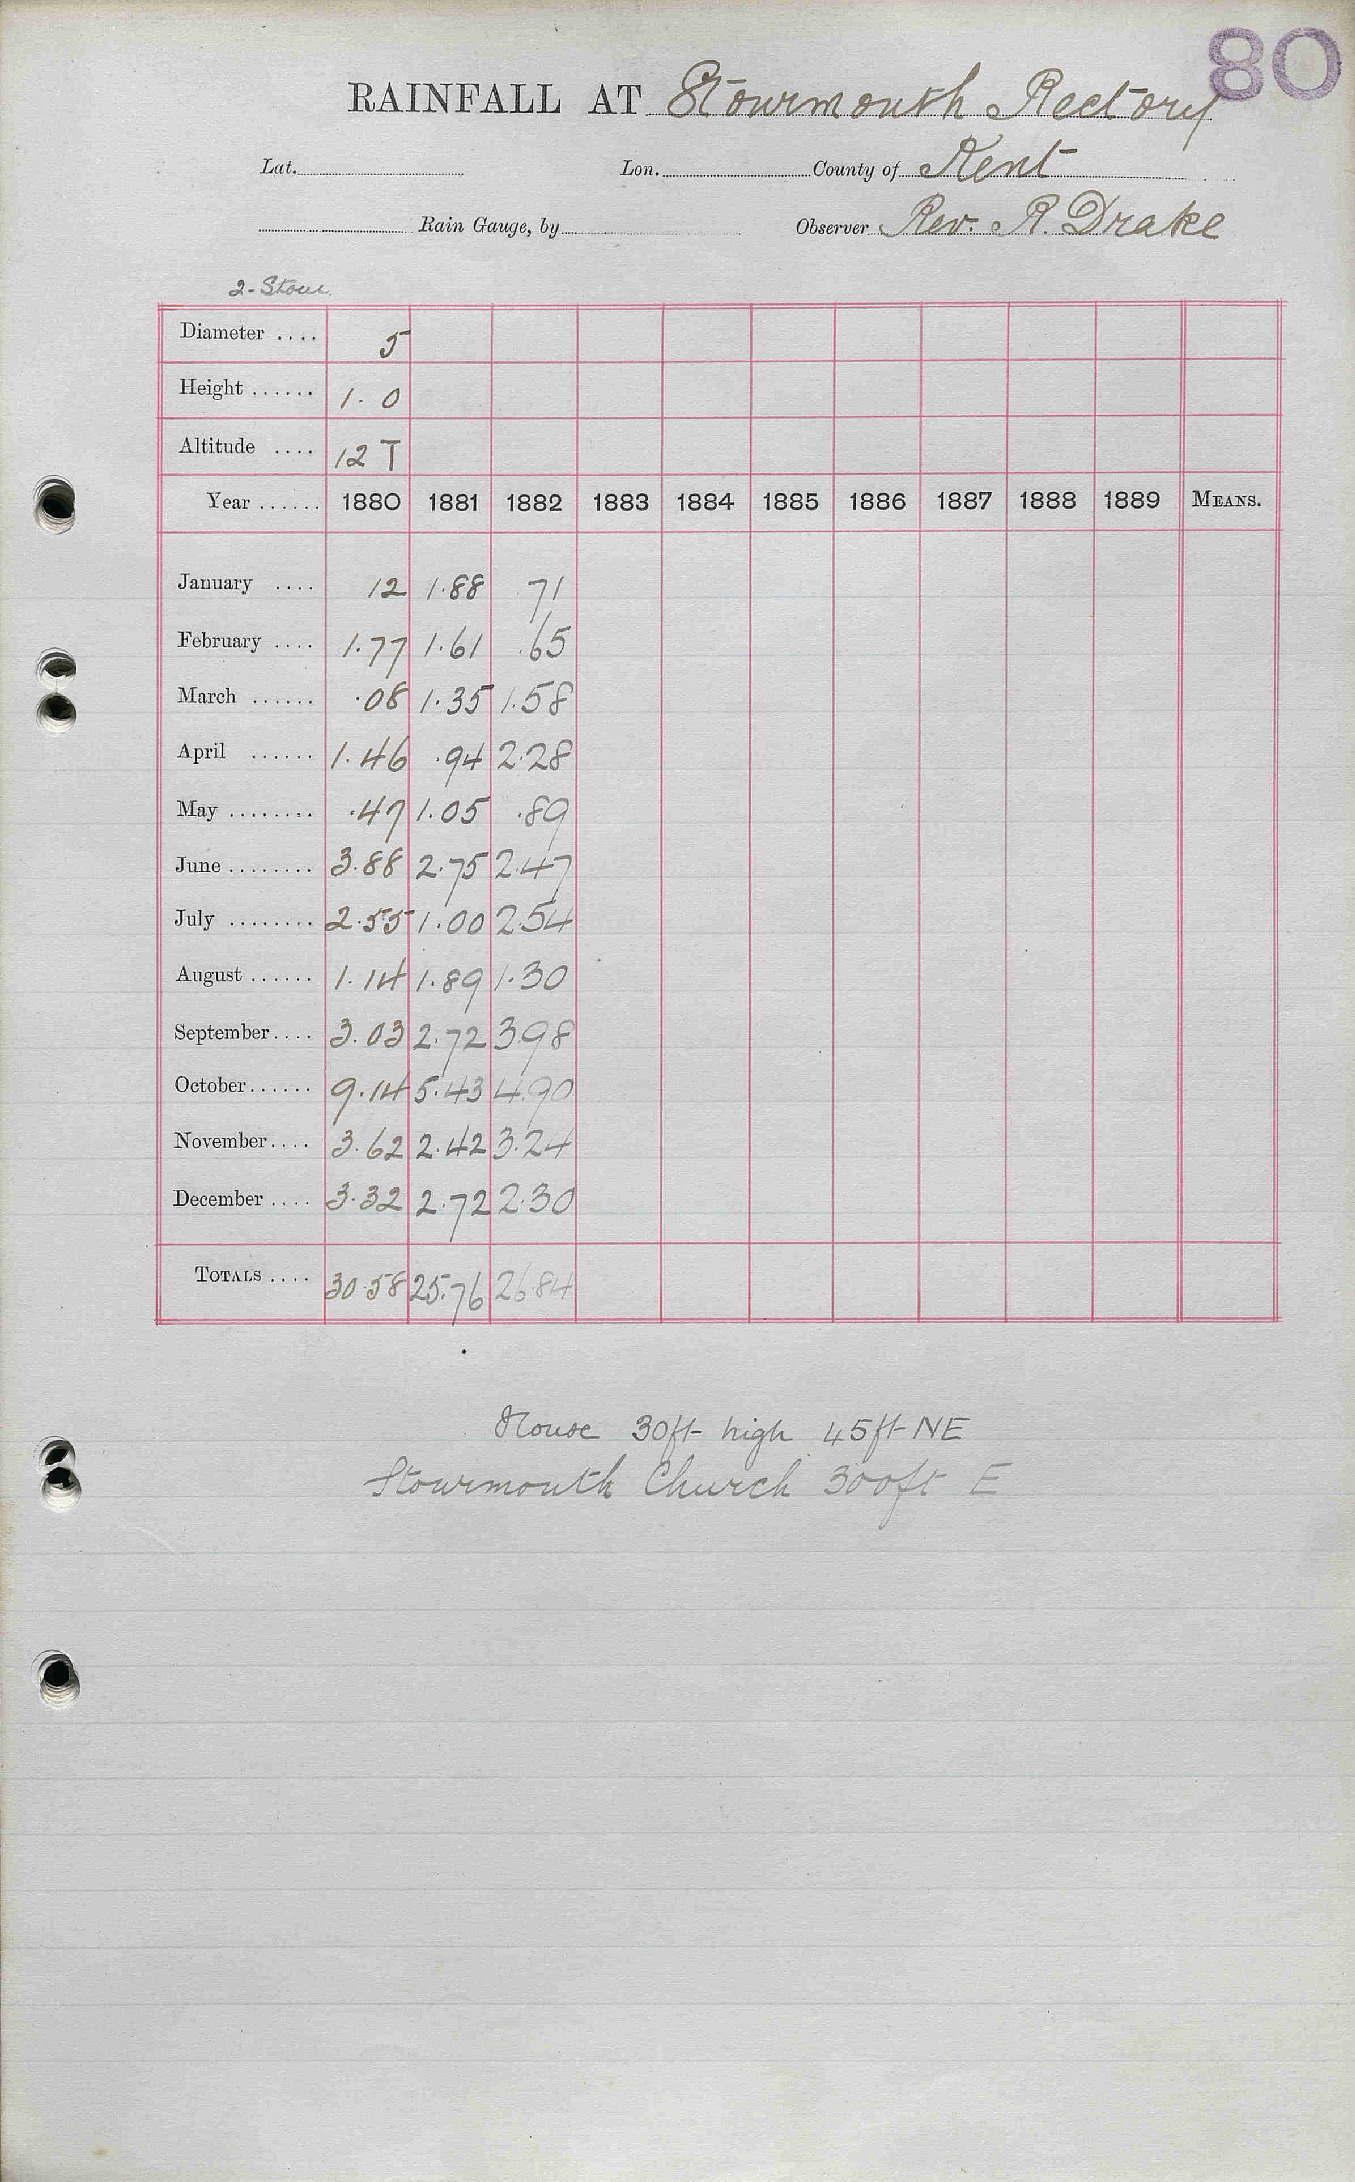 80
RAINFALL AT Stourmouth Rectory
Lat. Lon. County of Kent
Rain Gauge, by Observer Rev. R. Drake
2-Stour
Diameter .... 5
Height ...... 1.0
Altitude .... 12 T
Year ...... 1880 1881 1882 1883 1884 1885 1886 1887 1888 1889 MEANS.
January .... 12 1.88 .71
February .... 1.77 1.61 .65
March ...... .08 1.35 1.58
April ...... 1.46 .94 2.28
May ........ .47 1.05 .89
June ........ 3.88 2.75 2.47
July ........ 2.55 1.00 2.54
August ...... 1.14 1.89 1.30
September.... 3.03 2.72 3.98
October...... 9.14 5.43 4.90
November.... 3.62 2.42 3.24
December .... 3.32 2.72 2.30
TOTALS .... 30.58 25.76 26.84
House 30ft high 45ft NE
Stourmouth Church 300ft E